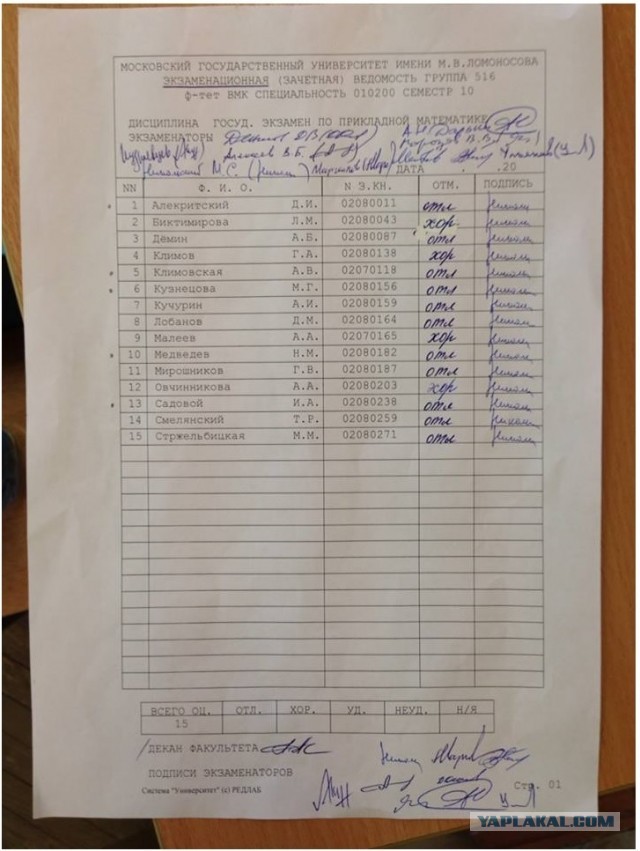 МОСКОВСКИЙ ГОСУДАРСТВЕННЫЙ УНИВЕРСИТЕТ ИМЕНИ М.В.ЛОМОНОСОВА
ЭКЗАМЕНАЦИОННАЯ (ЗАЧЕТНАЯ) ВЕДОМОСТЬ ГРУППА 516
ф-тет ВМК СПЕЦИАЛЬНОСТЬ 010200 СЕМЕСТР 10
ДИСЦИПЛИНА ГОСУД. ЭКЗАМЕН ПО ПРИКЛАДНОЙ МАТЕМАТИКЕ
ЭКЗАМЕНАТОРЫ
В.Б.
М.С.
ДАТА . .20
NN Ф. И. О. N З.КН. ОТМ. ПОДПИСЬ
1 Алекритский Д.И. 02080011 отл
2 Биктимирова Л.М. 02080043 хор
3 Дёмин А.Б. 02080087 отл
4 Климов Г.А. 02080138 хор
5 Климовская А.В. 02070118 отл
6 Кузнецова М.Г. 02080156 отл
7 Кучурин А.И. 02080159 отл
8 Лобанов Д.М. 02080164 отл
9 Малеев А.А. 02070165 хор
10 Медведев Н.М. 02080182 отл
11 Мирошников Г.В. 02080187 отл
12 Овчинникова А.А. 02080203 хор
13 Садовой И.А. 02080238 отл
14 Смелянский Т.Р. 02080259 отл
15 Стржельбицкая М.М. 02080271 отл
ВСЕГО ОЦ. ОТЛ. ХОР. УД. НЕУД. Н/Я
15
ДЕКАН ФАКУЛЬТЕТА
ПОДПИСИ ЭКЗАМЕНАТОРОВ
Система "Университет" (c) РЕДЛАБ
Стр. 01
YAPLAKAL.COM